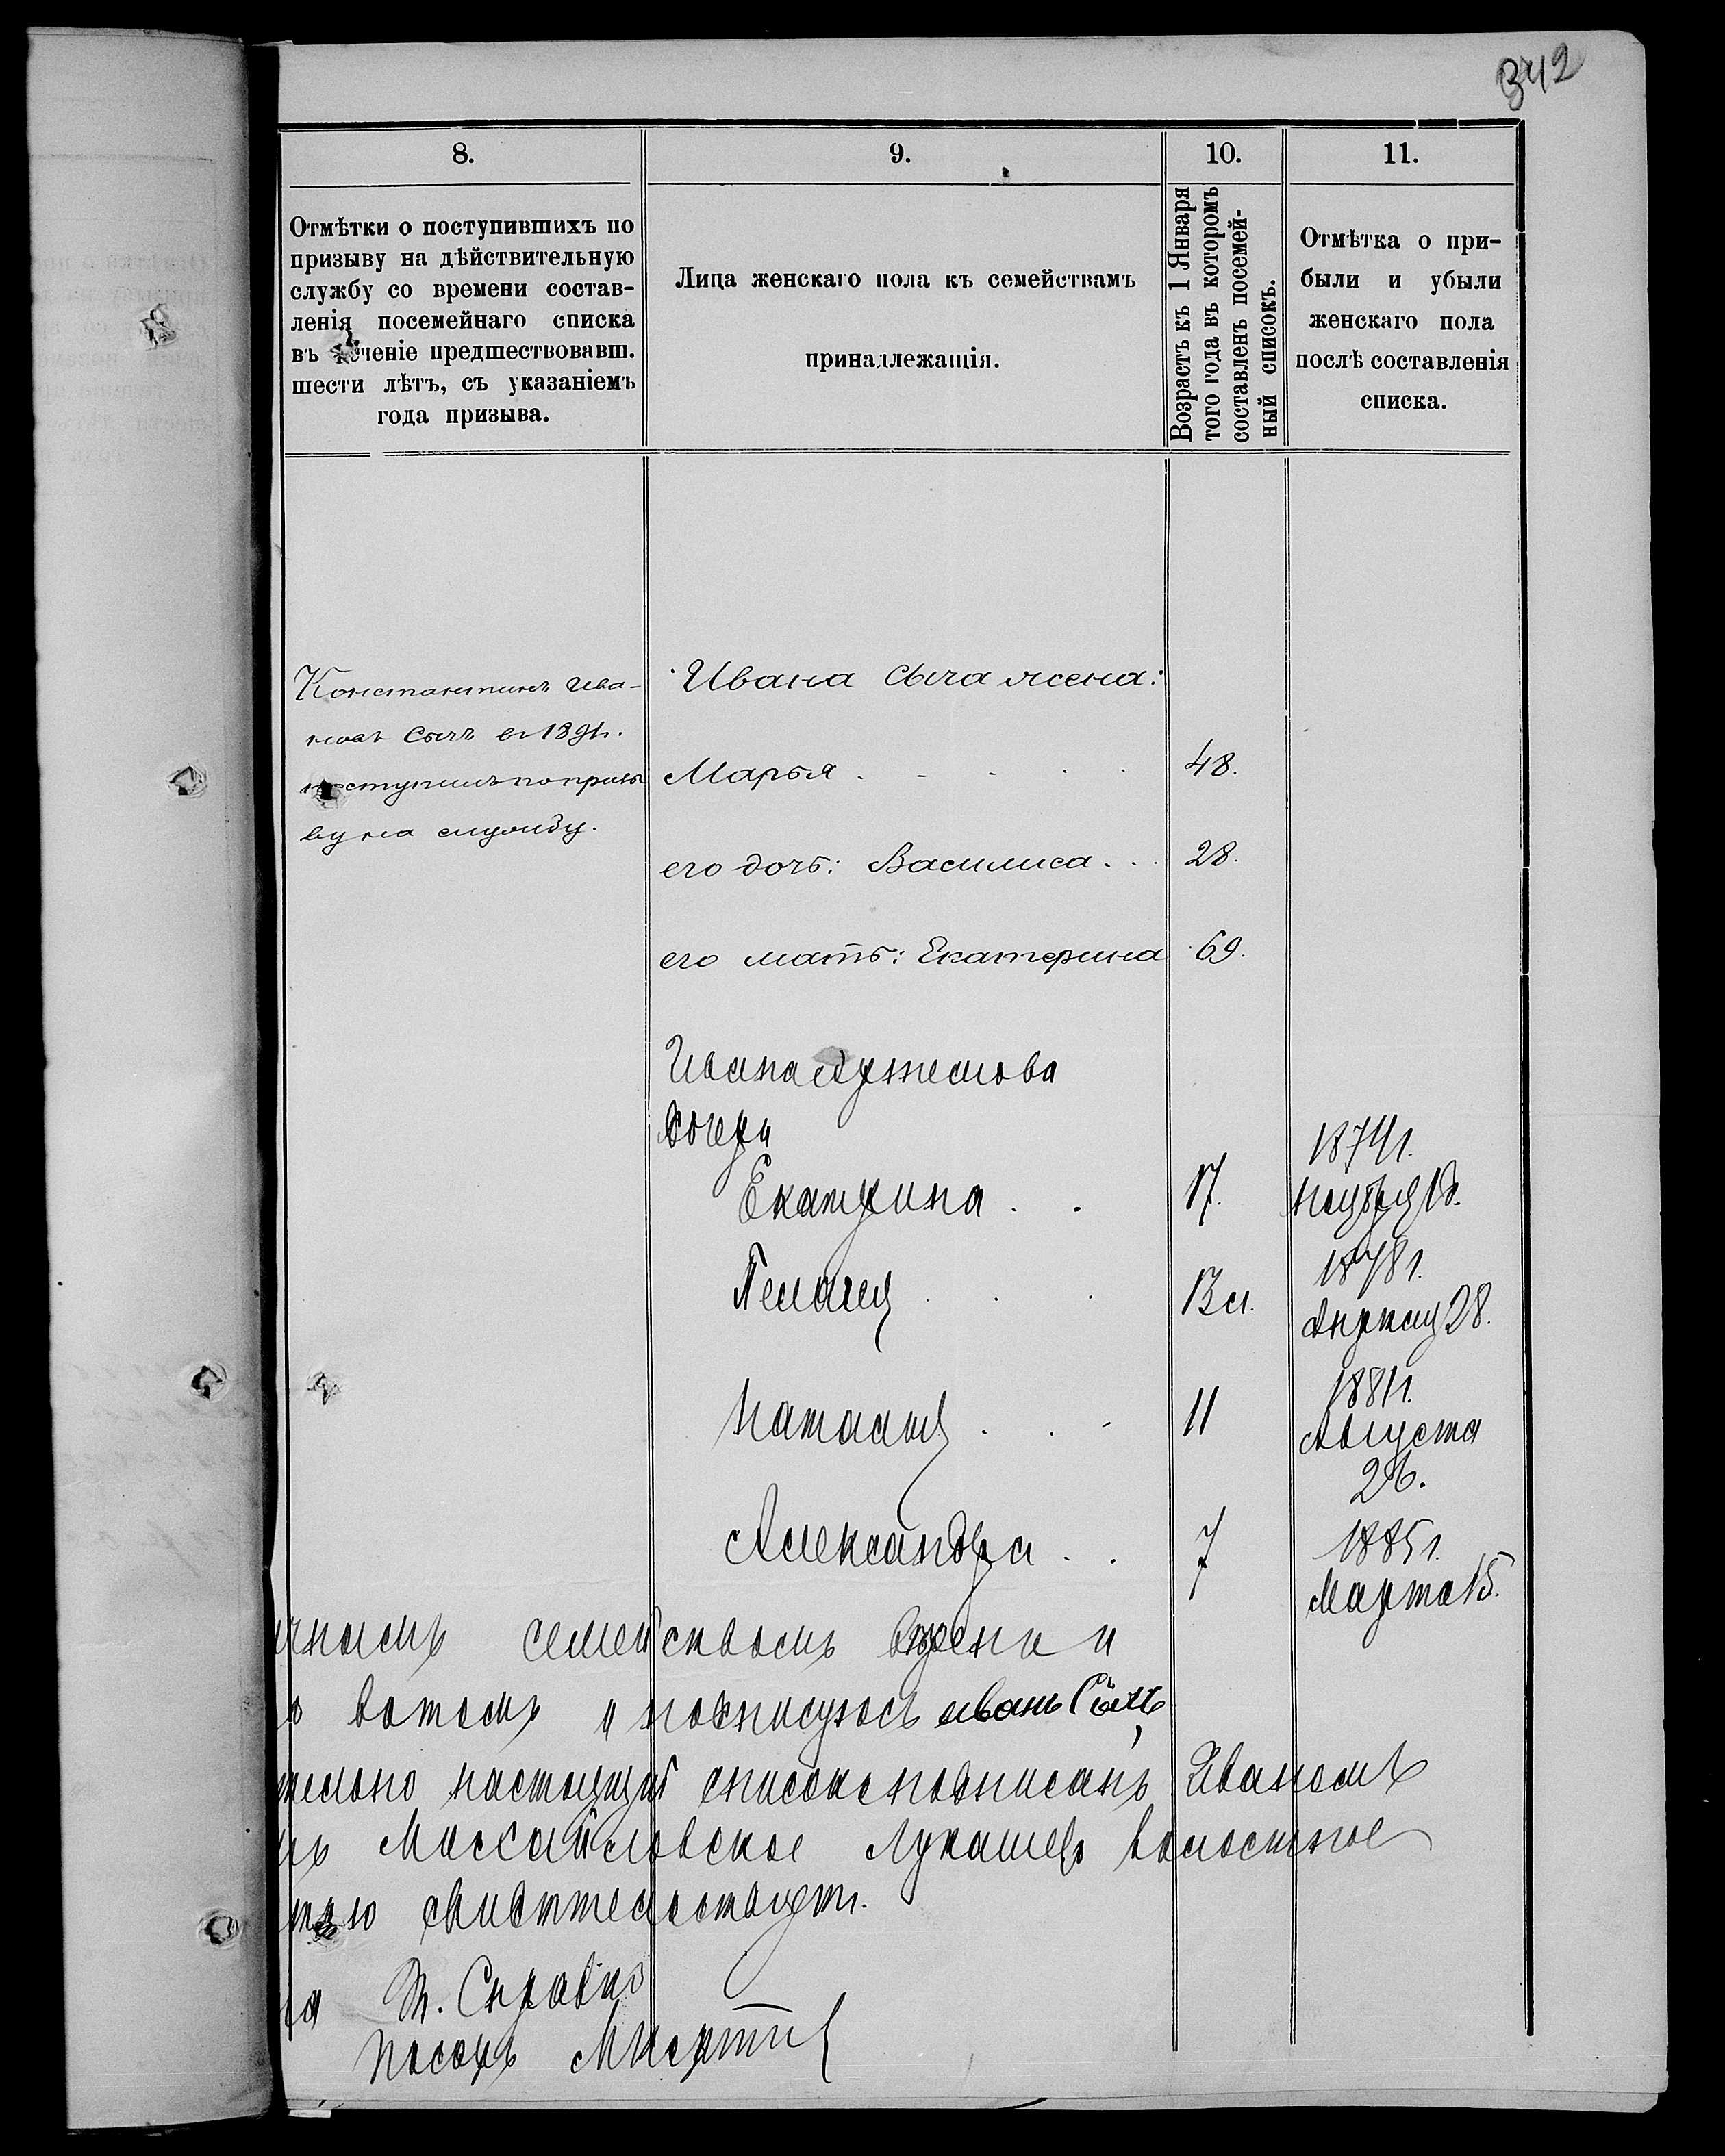 342
8.
9.
10.
11.
Отмѣтки о поступившихъ по
призыву на дѣйствительную
службу со времени состав-
ленія посемейнаго списка
въ теченіе предшествовавш.
шести лѣтъ, съ указаніемъ
года призыва.
Лица женскаго пола къ семействамъ
принадлежащія.
Возрастъ къ 1 Января
того года въ которомъ
составленъ посемей-
ный списокъ.
Отмѣтка о при-
были и убыли
женскаго пола
послѣ составленія
списка.
Константинъ Ива-
новъ Сычъ въ 1891г.
поступилъ по призы
ву на службу.
Ивана Сыча жена:
Марья 48.
его дочь: Василиса 28.
его мать: Екатерина 69.
Ивана
дочери
Екатерина 17. 1874г.
Ноября
Пелагея 13 1878г.
28.
Наталья 11 1881г.
Августа
26.
Александра 7 1885г.
Марта 15.
семей и
и подписуюсь иванъ Сычъ
настоящій списокъ подписанъ Иваномъ
Михайловское волостное
Справки
Писарь